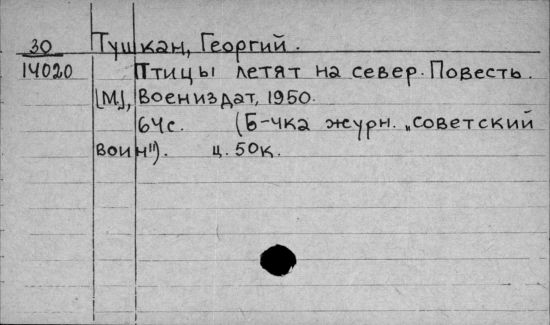 30 Тушкан, Георгий.
14020 Птицы летят на север. Повесть.
[М], Воениздат, 1950.
64с. (Б-чка журн. „Советский
воин"). ц. 50к.